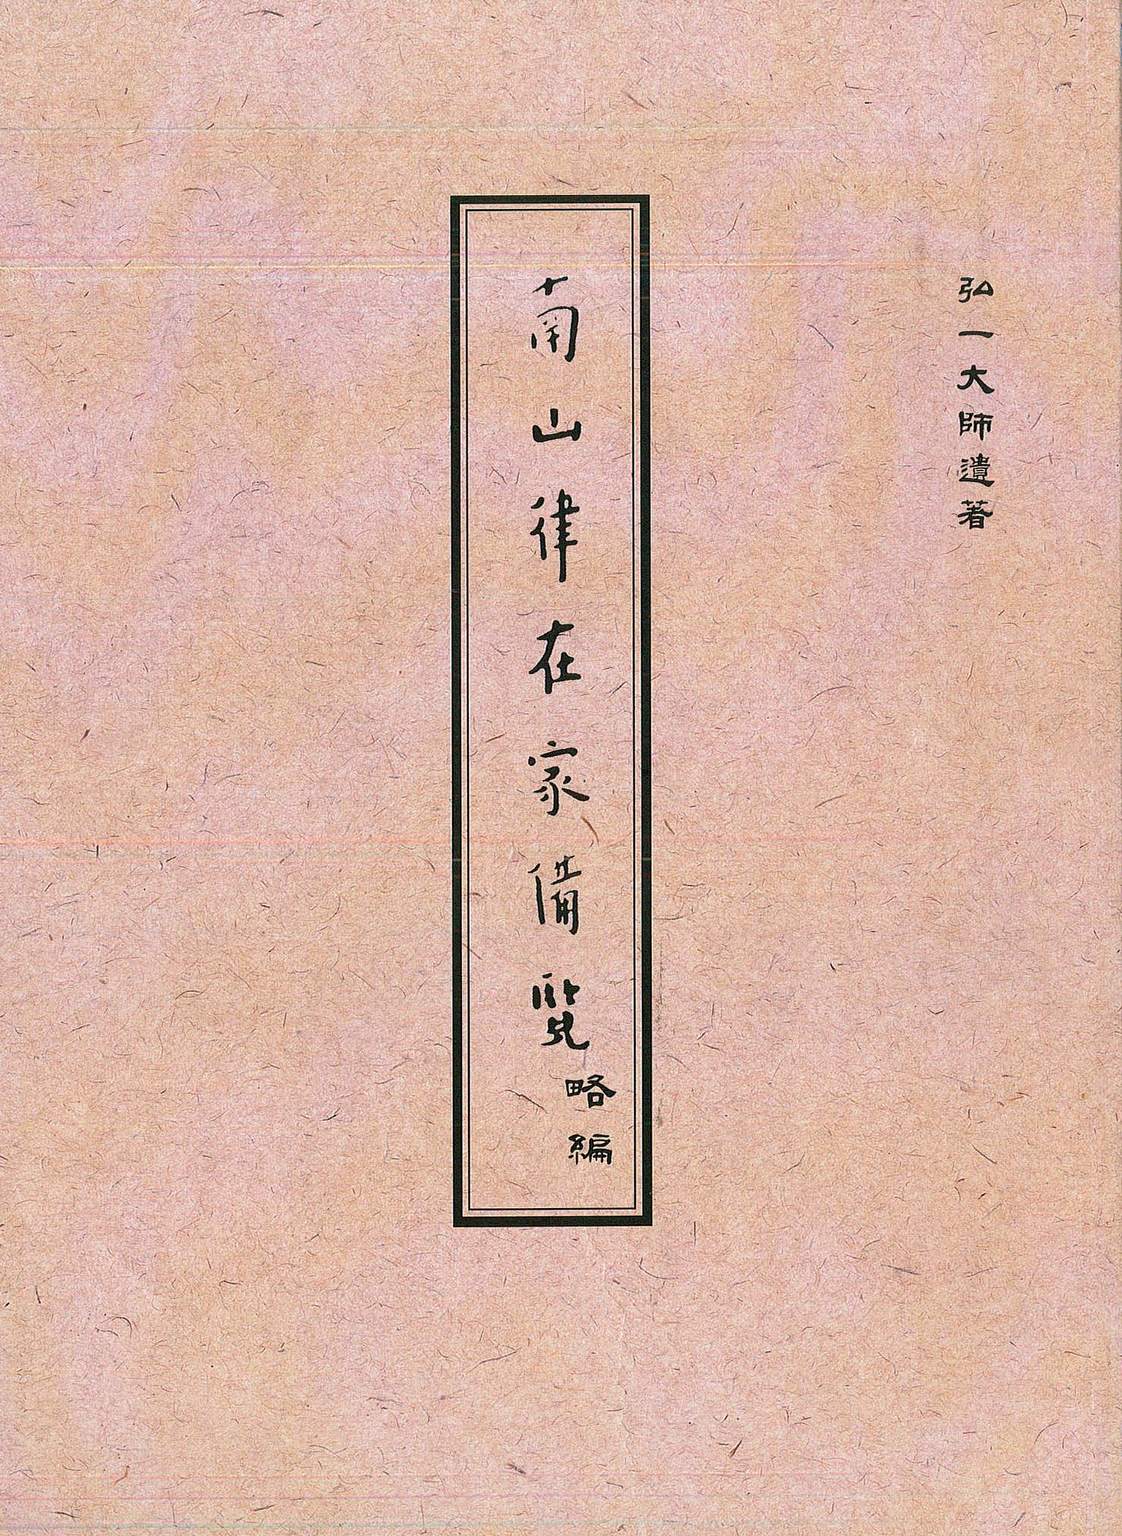 弘一大師遺著
南山律在家備覽
略編